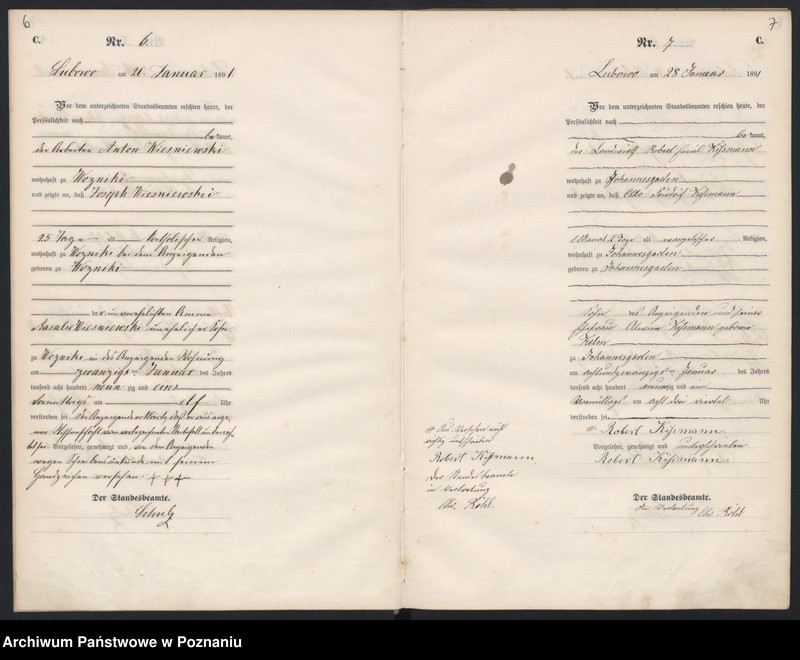 6
C.
Nr. 6
Lubowo am 21. Januar 1891
Vor dem unterzeichneten Standesbeamten erschien heute, der
Persönlichkeit nach
bekannt,
der Arbeiter Anton Wiesniewski
wohnhaft zu Wozniki
und zeigte an, daß Joseph Wiesniewski
25 Tage alt katholischer Religion,
wohnhaft zu Wozniki bei dem Anzeigenden
geboren zu Wozniki
der unverehelichten Amme
Rosalie Wiesniewski unehelicher Sohn
zu Wozniki in des Anzeigenden Wohnung
am zwanzigsten Januar des Jahres
tausend acht hundert neunzig und eins
Vormittags um elf Uhr
verstorben sei. Der Anzeigende erklärte, daß er aus eige-
ner Wissenschaft von vorbezeichneten Sterbefall unterrich-
tet sei. Vorgelesen, genehmigt und von dem Anzeigenden
wegen Schreibensunkunde mit seinem
Handzeichen versehen +++
Der Standesbeamte.
Schulz
7
C.
Nr. 7
Lubowo am 28 Januar 1891
Vor dem unterzeichneten Standesbeamten erschien heute, der
Persönlichkeit nach
bekannt,
der Landwirth Robert Kißmann
wohnhaft zu Johannesgarten
und zeigte an, daß Otto Friedrich Kißmann
1 Monat 2 Tage alt evangelischer Religion,
wohnhaft zu Johannesgarten
geboren zu Johannesgarten
Sohn des Anzeigenden und seiner
Ehefrau Alwine Kißmann geborene
Kelm
zu Johannesgarten
am achtundzwanzigsten Januar des Jahres
tausend acht hundert neunzig und ein
Vormittags um acht drei viertel Uhr
verstorben sei.
Robert Kißmann
Vorgelesen, genehmigt und unterschrieben
Robert Kißmann.
Der Standesbeamte.
In Vertretung Chr. Röhl
Robert Kißmann.
Der Standesbeamte
in Vertretung
Chr. Röhl.
Archiwum Państwowe w Poznaniu